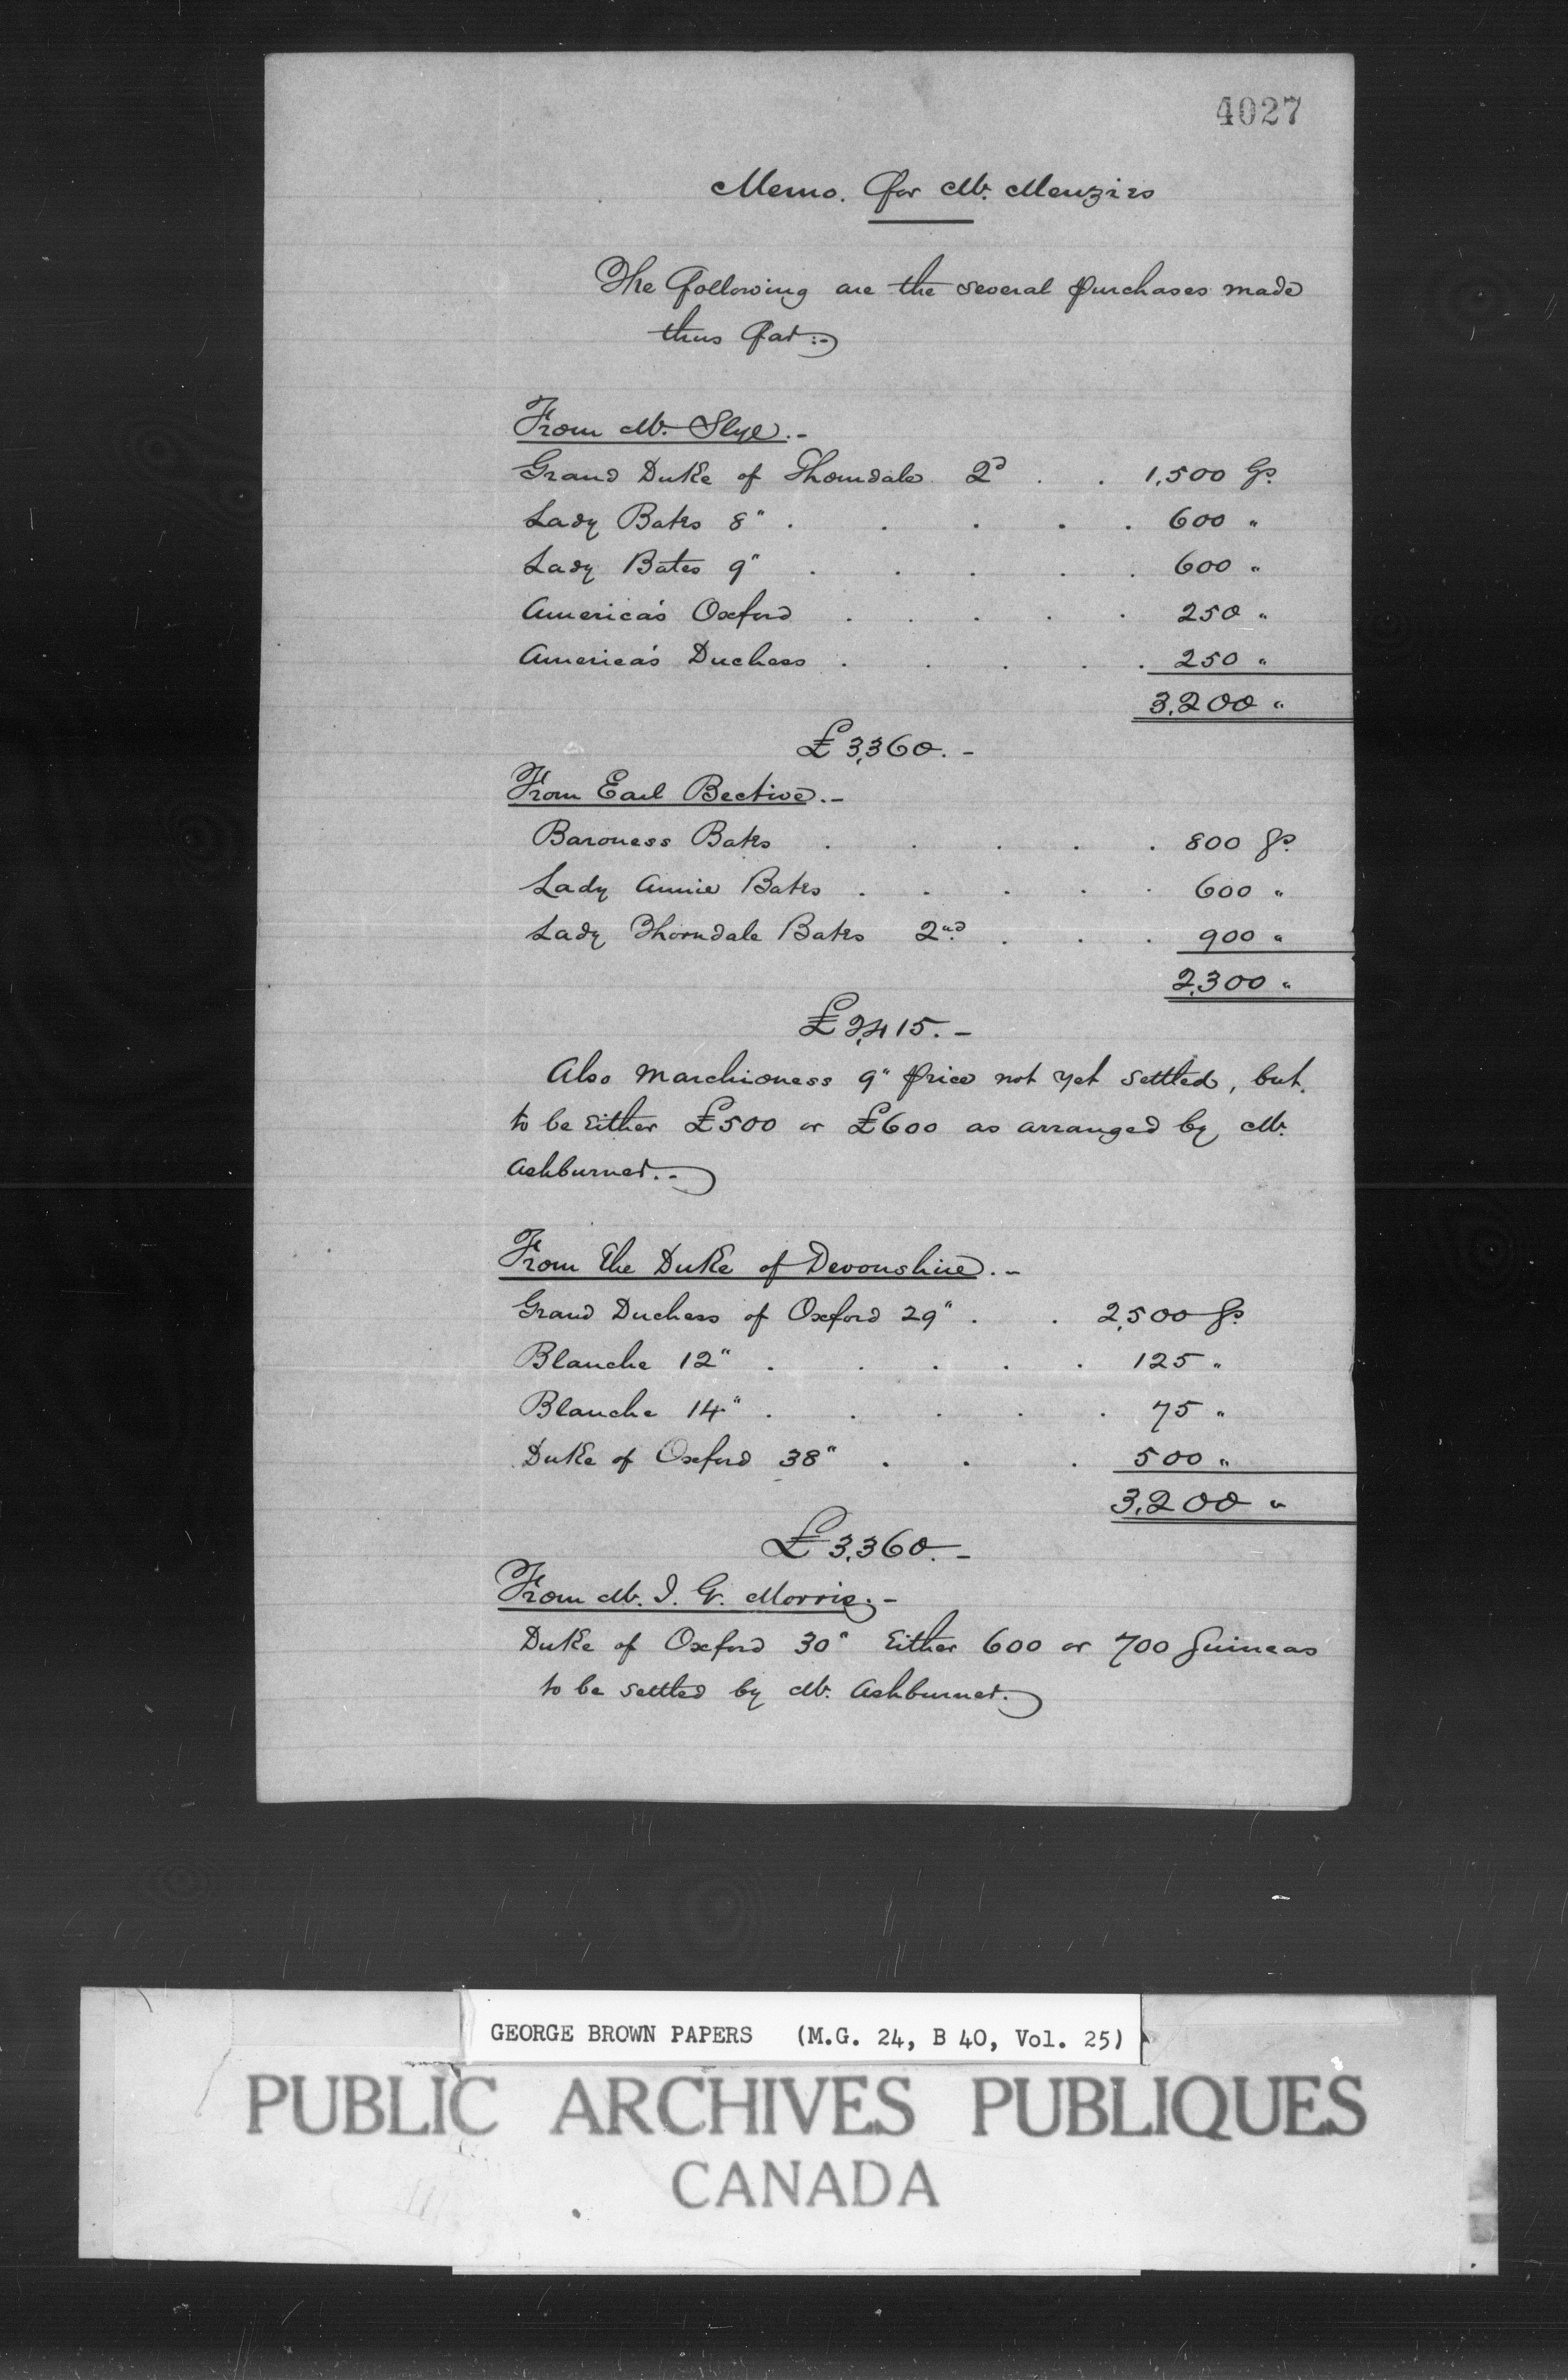 4027
Memo. for Mr. Menzies
The following are the several purchases made
thus far :-
From Mr. Slye. -
Grand Duke of Thorndale 2d . . 1,500 Gs.
Lady Bates 8" . . . . . 600 "
Lady Bates 9" . . . . . 600 "
America's Oxford . . . . . 250 "
America's Duchess . . . . . 250 "
3,200 "
£3,360. -
From Earl Bective. -
Baroness Bates . . . . . 800 gs.
Lady Annie Bates . . . . . 600 "
Lady Thorndale Bates 2nd. . . . 900 "
2,300 "
£2,415. -
Also Marchioness 9" price not yet settled, but
to be either £500 or £600 as arranged by Mr.
Ashburner. -
From the Duke of Devonshire. -
Grand Duchess of Oxford 29" . . 2,500 gs.
Blanche 12" . . . . . 125 "
Blanche 14" . . . . . 75 "
Duke of Oxford 38" . . . 500 "
3,200 "
£3,360. -
From Mr. I. G. Morris. -
Duke of Oxford 30" either 600 or 700 guineas
to be settled by Mr. Ashburner.
GEORGE BROWN PAPERS (M.G. 24, B 40, Vol. 25)
PUBLIC ARCHIVES PUBLIQUES
CANADA